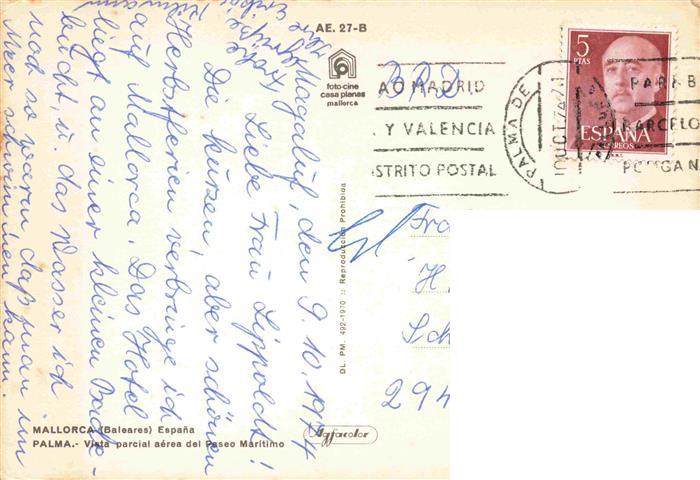 Magaluf, den 9.10.1974
Liebe Frau Lippoldt!
Die kurzen, aber schönen
Herbstferien verbringe ich
auf Mallorca. Das Hotel
liegt an einer kleinen Bade-
bucht, u. das Wasser ist
noch so warm, daß man im
Meer schwimmen kann.
Frohe
AE. 27-B
foto-cine
casa planas
mallorca
BRD
AO MADRID
A Y VALENCIA
ISTRITO POSTAL
PALMA DE
10 OCT 74
PARA B
BARCELO
PONGA N
5
PTAS
ESPAÑA
CORREOS
DL. PM. 492-1970 :: Reproducción Prohibida
Fra
H
Sch
294
MALLORCA (Baleares) España
PALMA.- Vista parcial aérea del Paseo Marítimo
Agfacolor